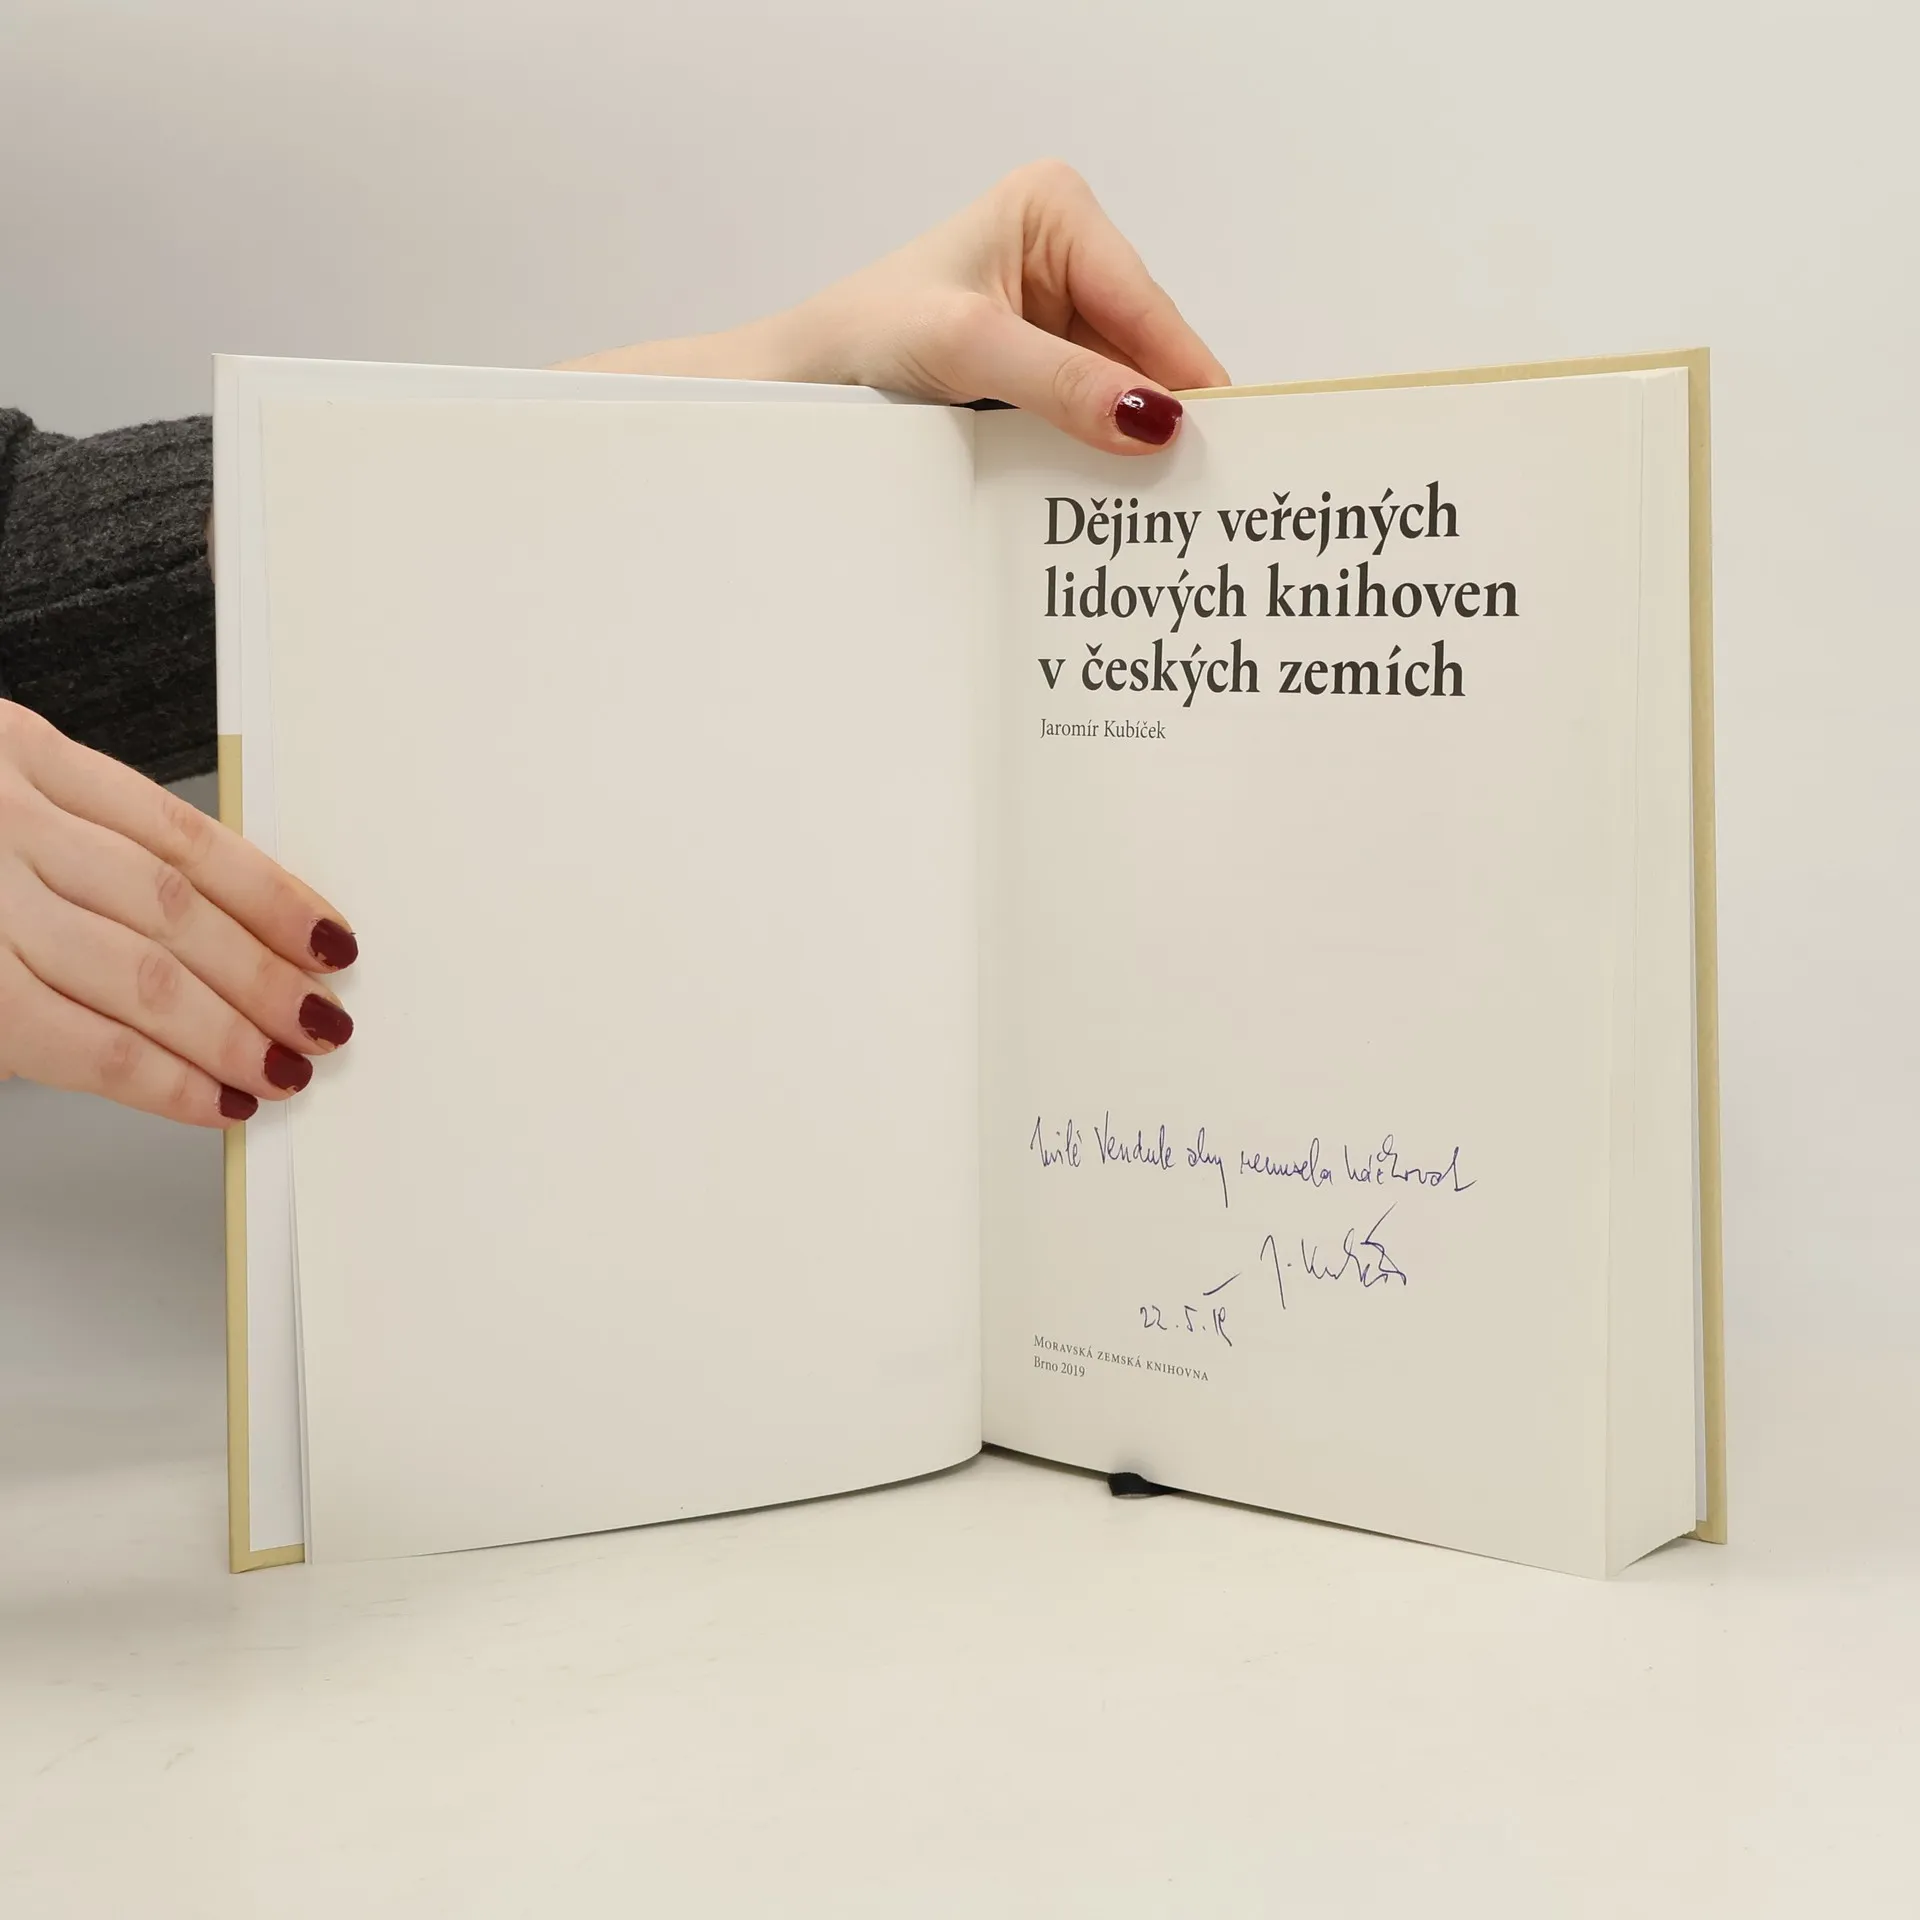 Dějiny veřejných
lidových knihoven
v českých zemích
Jaromír Kubíček
milé Vendule aby nemusela háčkovat
J. Kubíček
22. 5. 19
Moravská zemská knihovna
Brno 2019